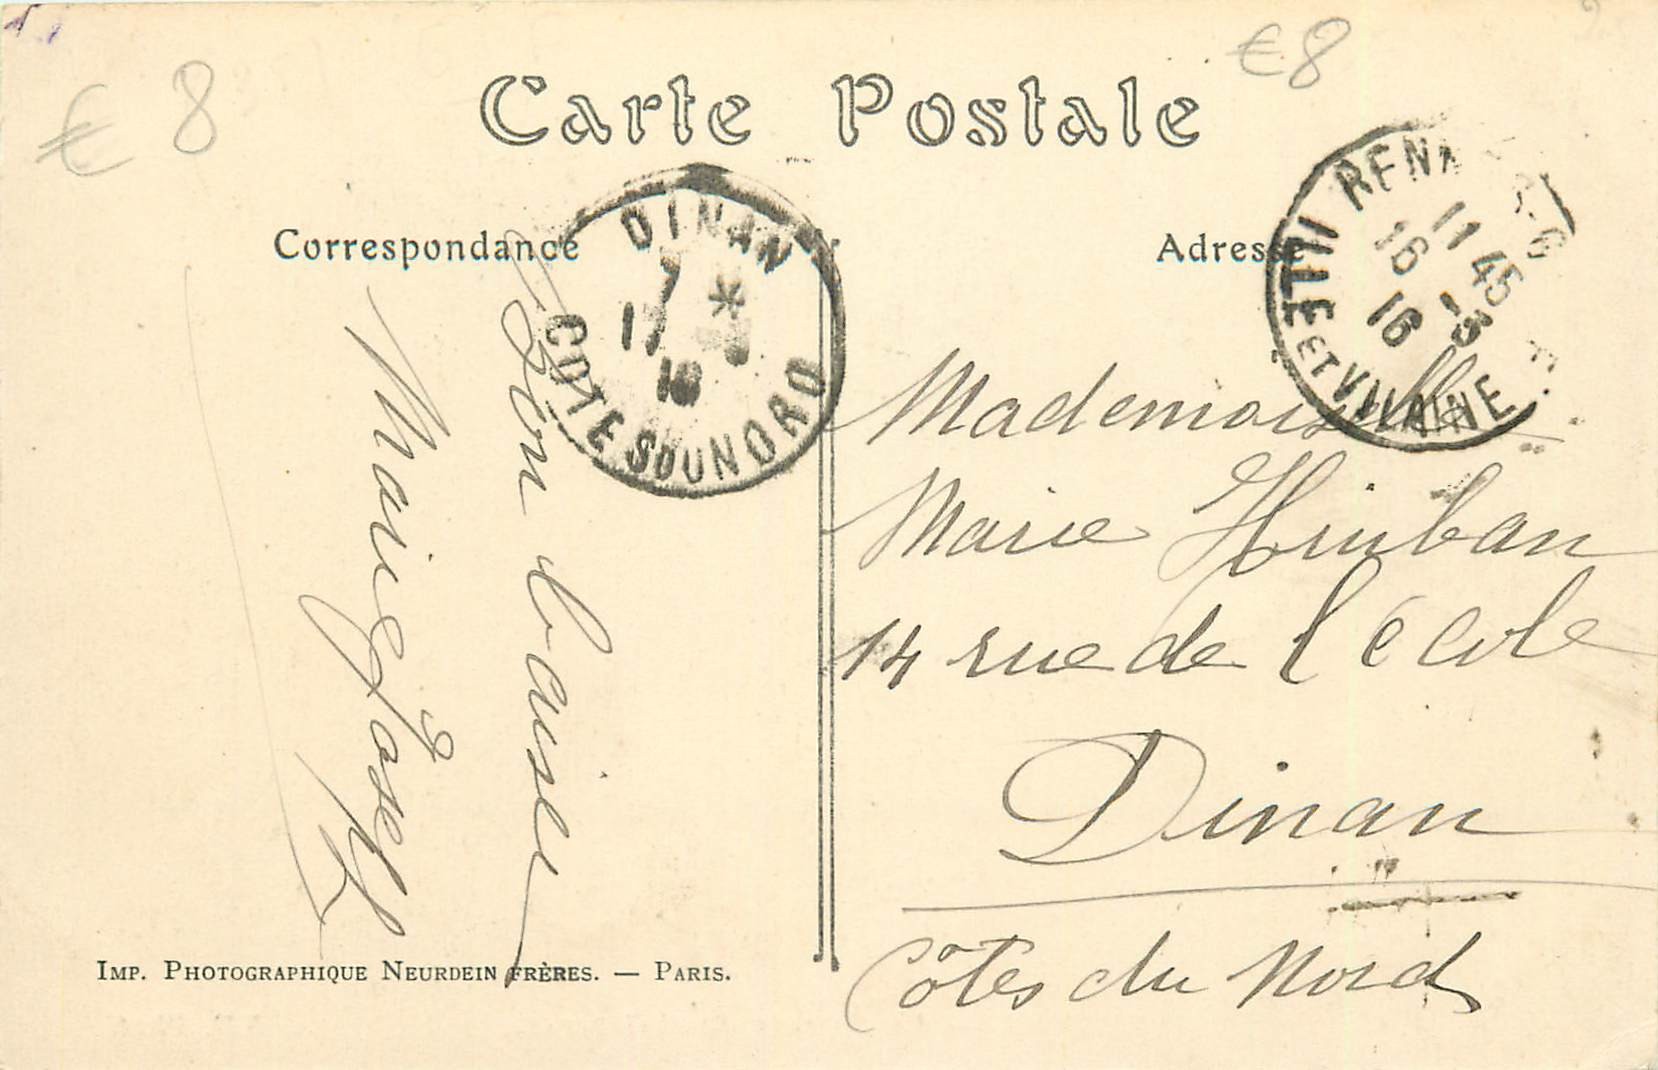 € 8
€8
Carte Postale
Correspondance
Adresse
DINAN
7 *
17
16
COTES DU NORD
RENNES
11 45
16 -3
16
ILLE ET VILAINE
Bon baiser
Marie Joseph
Mademoiselle
Marie
14 rue de l'école
Dinan
Côtes du Nord
IMP. PHOTOGRAPHIQUE NEURDEIN FRÈRES. — PARIS.